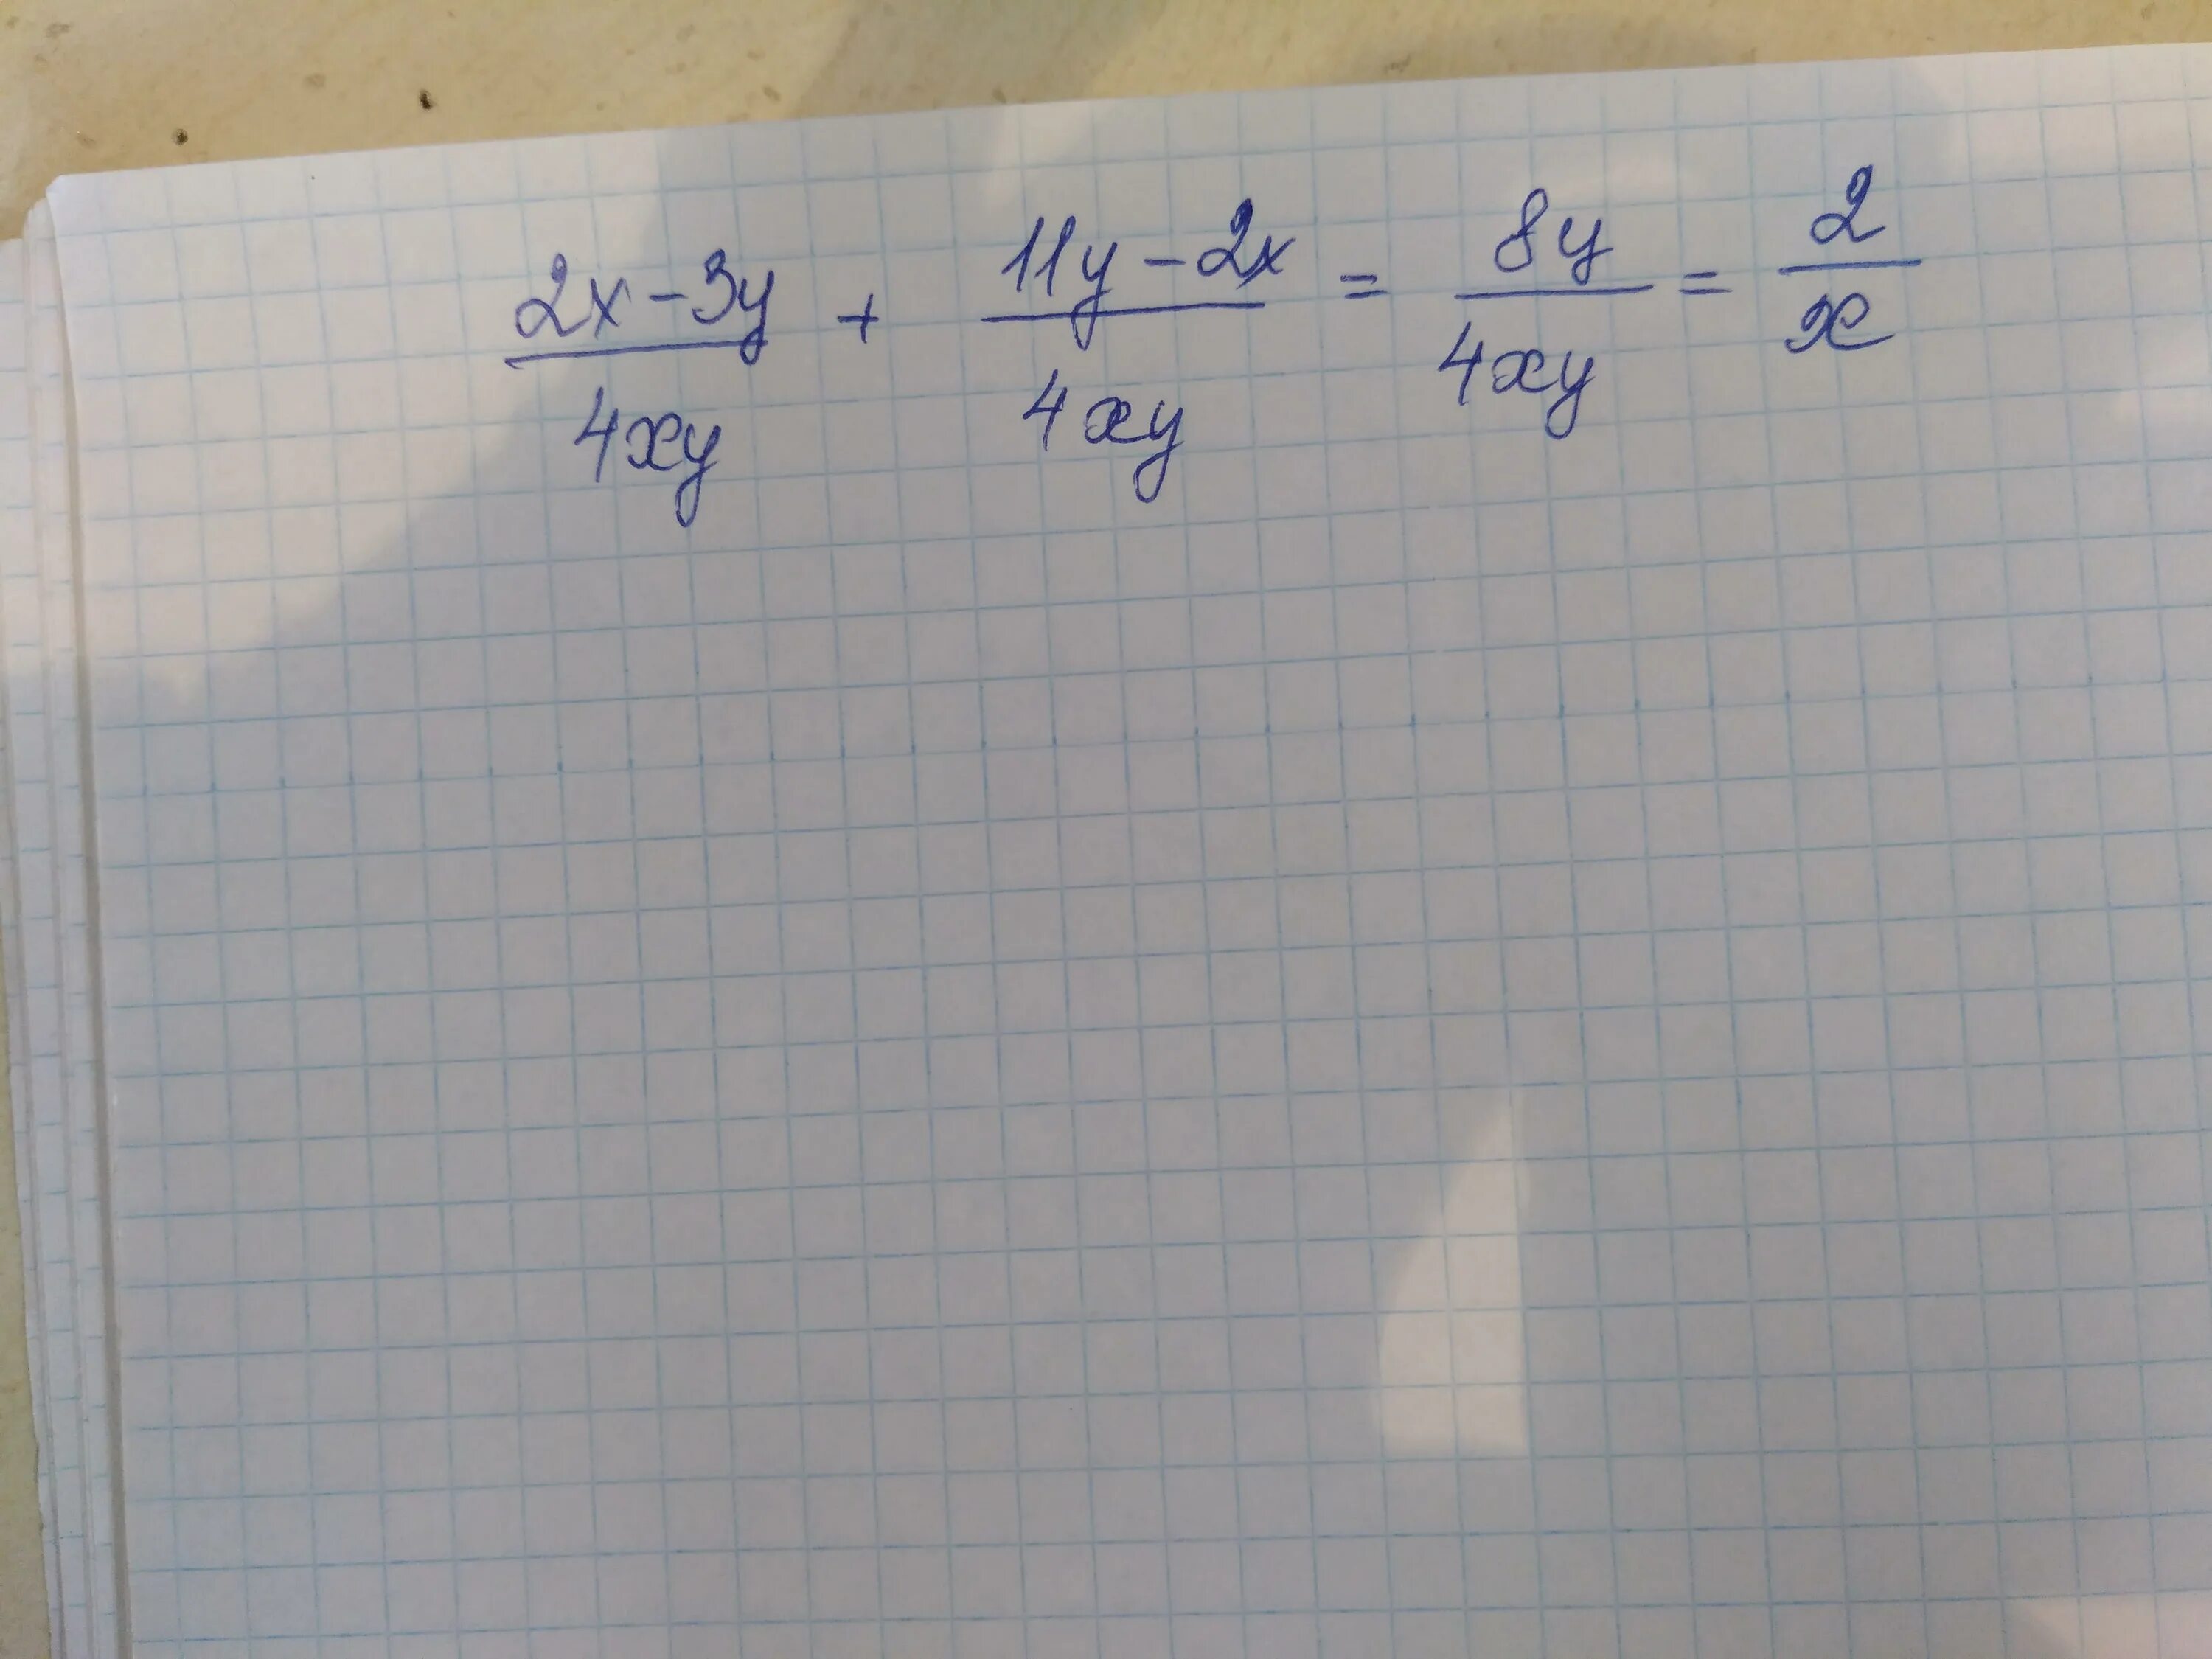 (2x-3y)/(4xy) + (11y-2x)/(4xy) = (8y)/(4xy) = 2/x